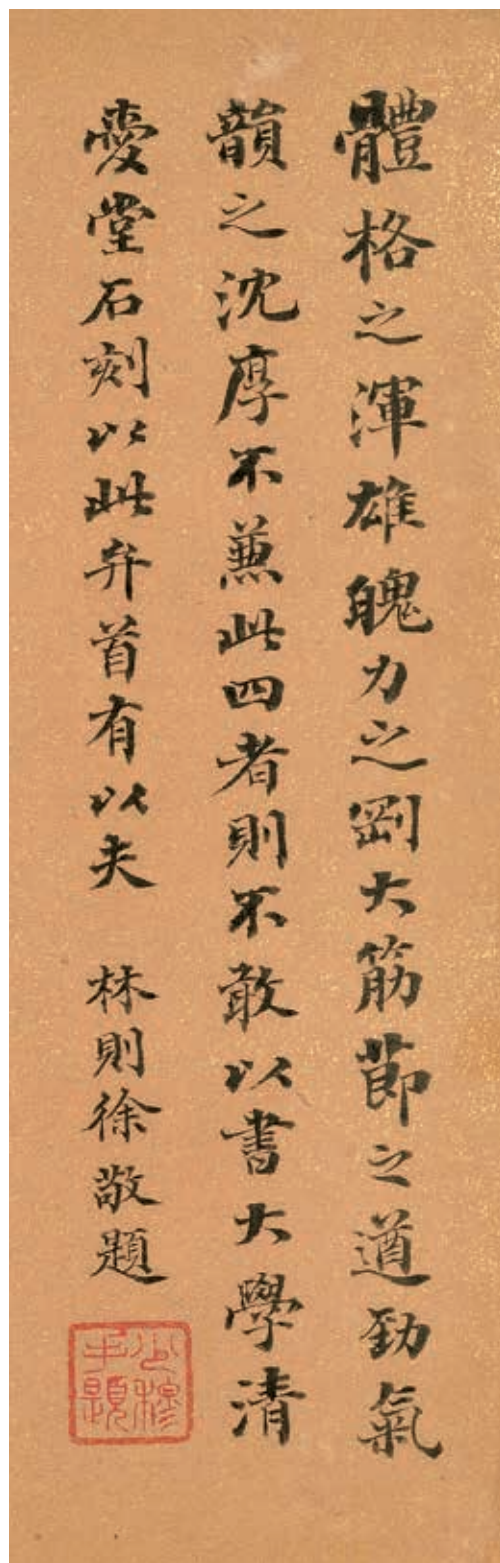 體格之渾雄魄力之剛大筋節之遒勁氣
韻之沈厚不兼此四者則不敢以書大學清
愛堂石刻以此弁首有以夫 林則徐敬題
少穆手題